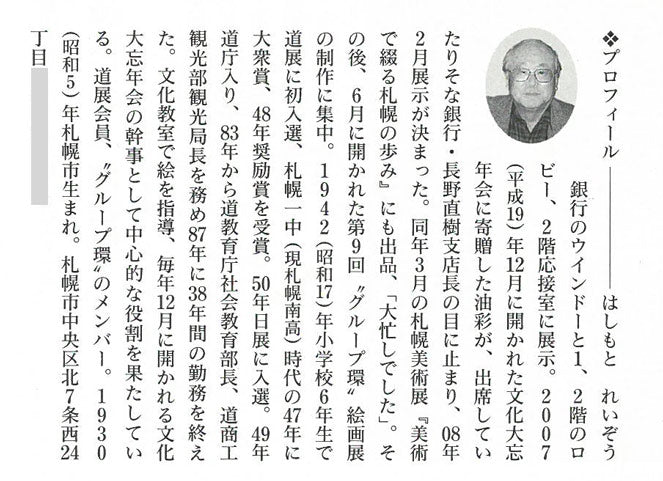 ❖プロフィール────はしもと　れいぞう
銀行のウインドーと1、2階のロ
ビー、2階応接室に展示。2007
(平成19)年12月に開かれた文化大忘
年会に寄贈した油彩が、出席してい
たりそな銀行・長野直樹支店長の目に止まり、08年
2月展示が決まった。同年3月の札幌美術展『美術
で綴る札幌の歩み』にも出品、「大忙しでした」。そ
の後、6月に開かれた第9回〝グループ環〟絵画展
の制作に集中。1942(昭和17)年小学校6年生で
道展に初入選、札幌一中(現札幌南高)時代の47年に
大衆賞、48年奨励賞を受賞。50年日展に入選。49年
道庁入り、83年から道教育庁社会教育部長、道商工
観光部観光局長を務め87年に38年間の勤務を終え
た。文化教室で絵を指導、毎年12月に開かれる文化
大忘年会の幹事として中心的な役割を果たしてい
る。道展会員、〝グループ環〟のメンバー。1930
(昭和5)年札幌市生まれ。札幌市中央区北7条西24
丁目